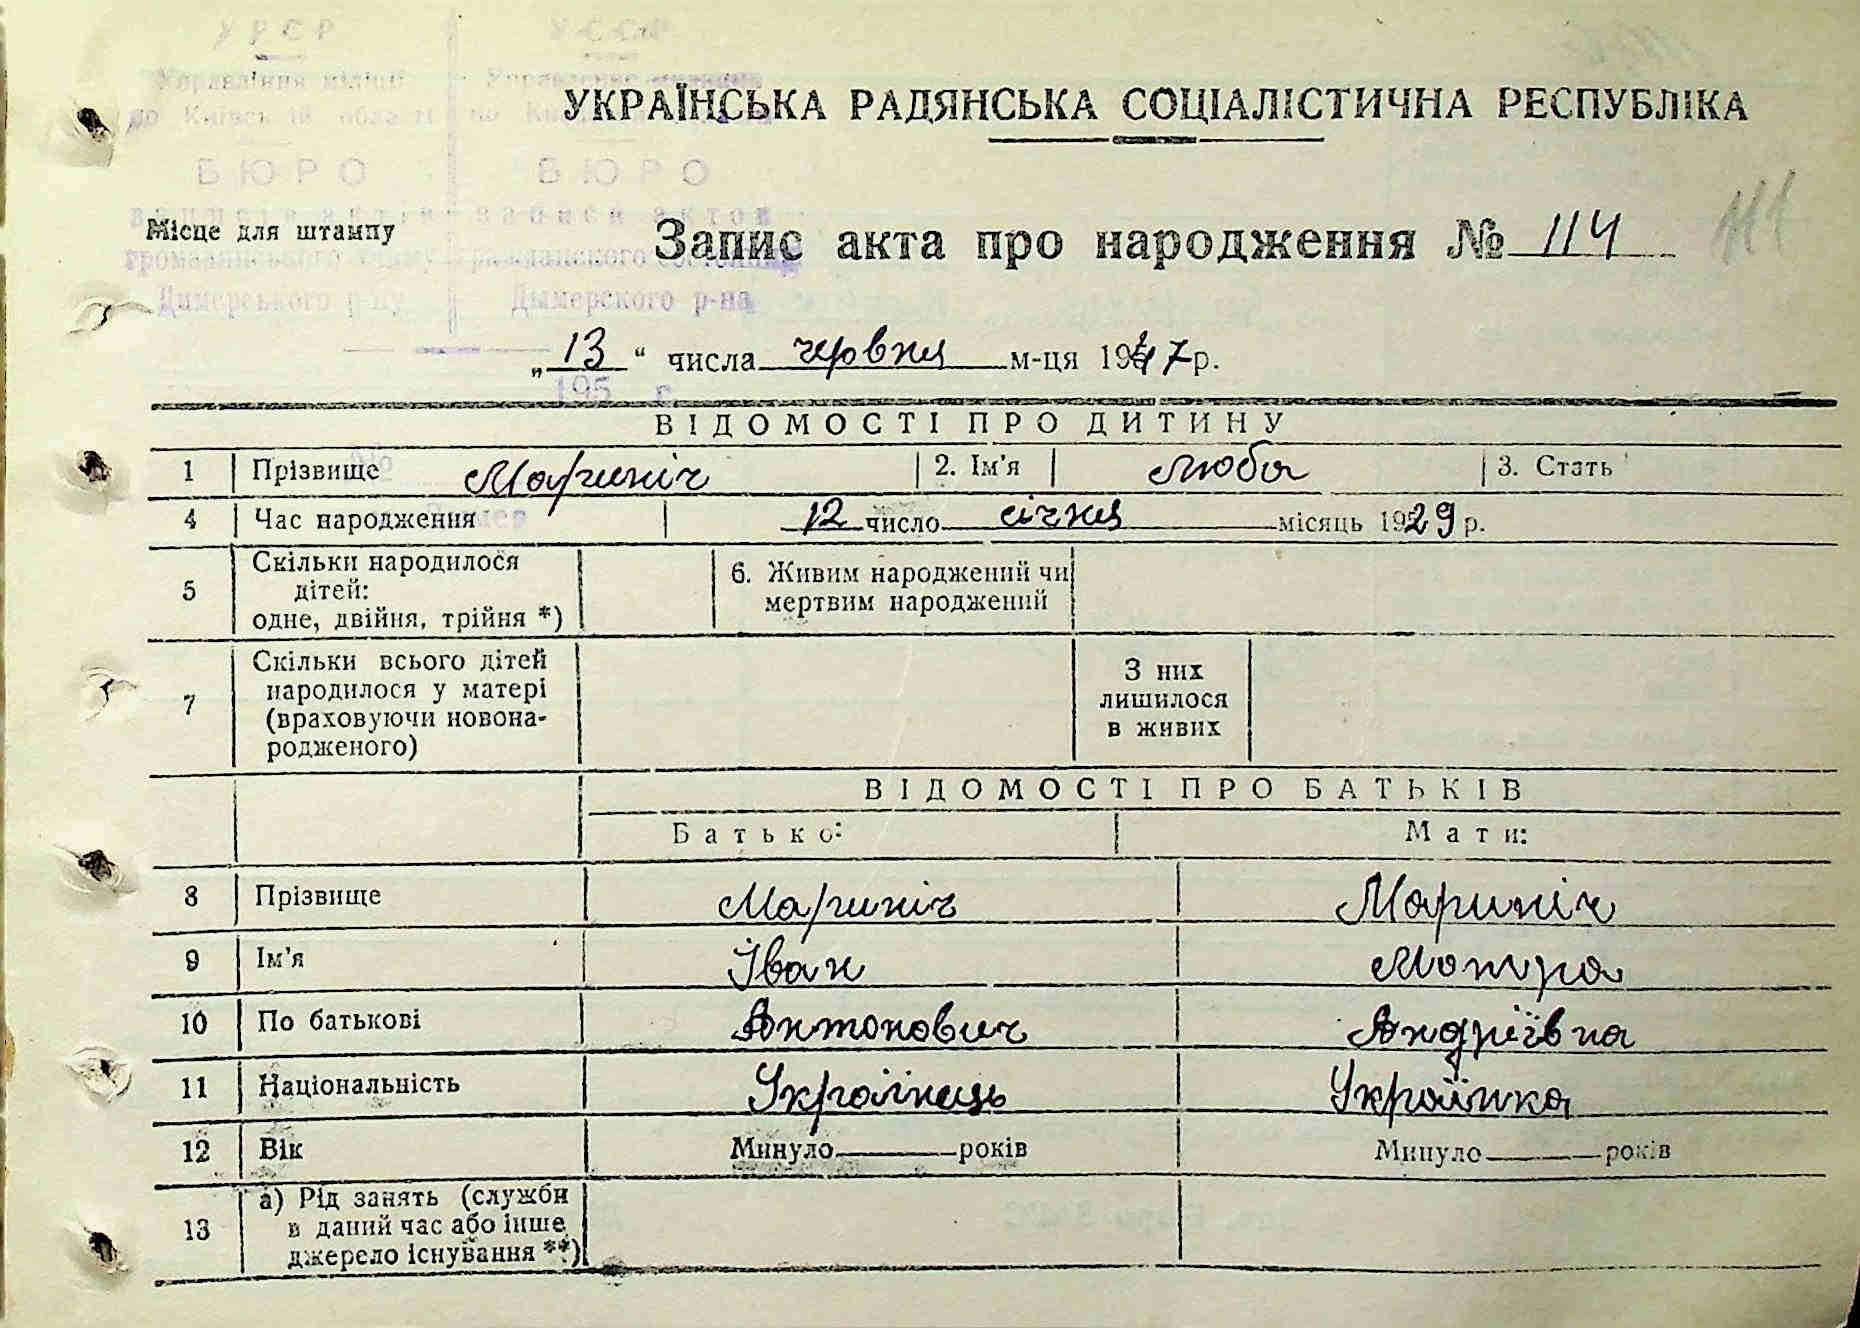 УРСР УССР
Управління міліції Управление милиции
по Київській області по Киевской
БЮРО БЮРО
УКРАЇНСЬКА РАДЯНСЬКА СОЦІАЛІСТИЧНА РЕСПУБЛІКА
записів актів записи актов
Місце для штампу
Запис акта про народження № 114 111
громадянського стану гражданского состояния
Димерського р-ну Дымерского р-на
„ 13 “ числа червня м-ця 1947 р.
195 г.
ВІДОМОСТІ ПРО ДИТИНУ
1 Прізвище Маринич 2. Ім’я Люба 3. Стать
4 Час народження 12 число січня місяць 1929 р.
5 Скільки народилося дітей: одне, двійня, трійня *) 6. Живим народжений чи мертвим народжений
7 Скільки всього дітей народилося у матері (враховуючи новона-родженого) З них лишилося в живих
ВІДОМОСТІ ПРО БАТЬКІВ
Батько: Мати:
8 Прізвище Мариніч Мариніч
9 Ім’я Іван Мотря
10 По батькові Антонович Андріївна
11 Національність Українець Українка
12 Вік Минуло років Минуло років
13 а) Рід занять (служби в даний час або інше джерело існування **)